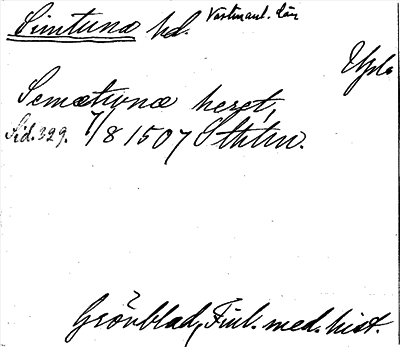 Simtuna hd. Vestmanl. län
Upl.
Semætuna heret,
Sid. 329. 7/8 1507 Sthlm.
Grönblad, Finl. med. hist.